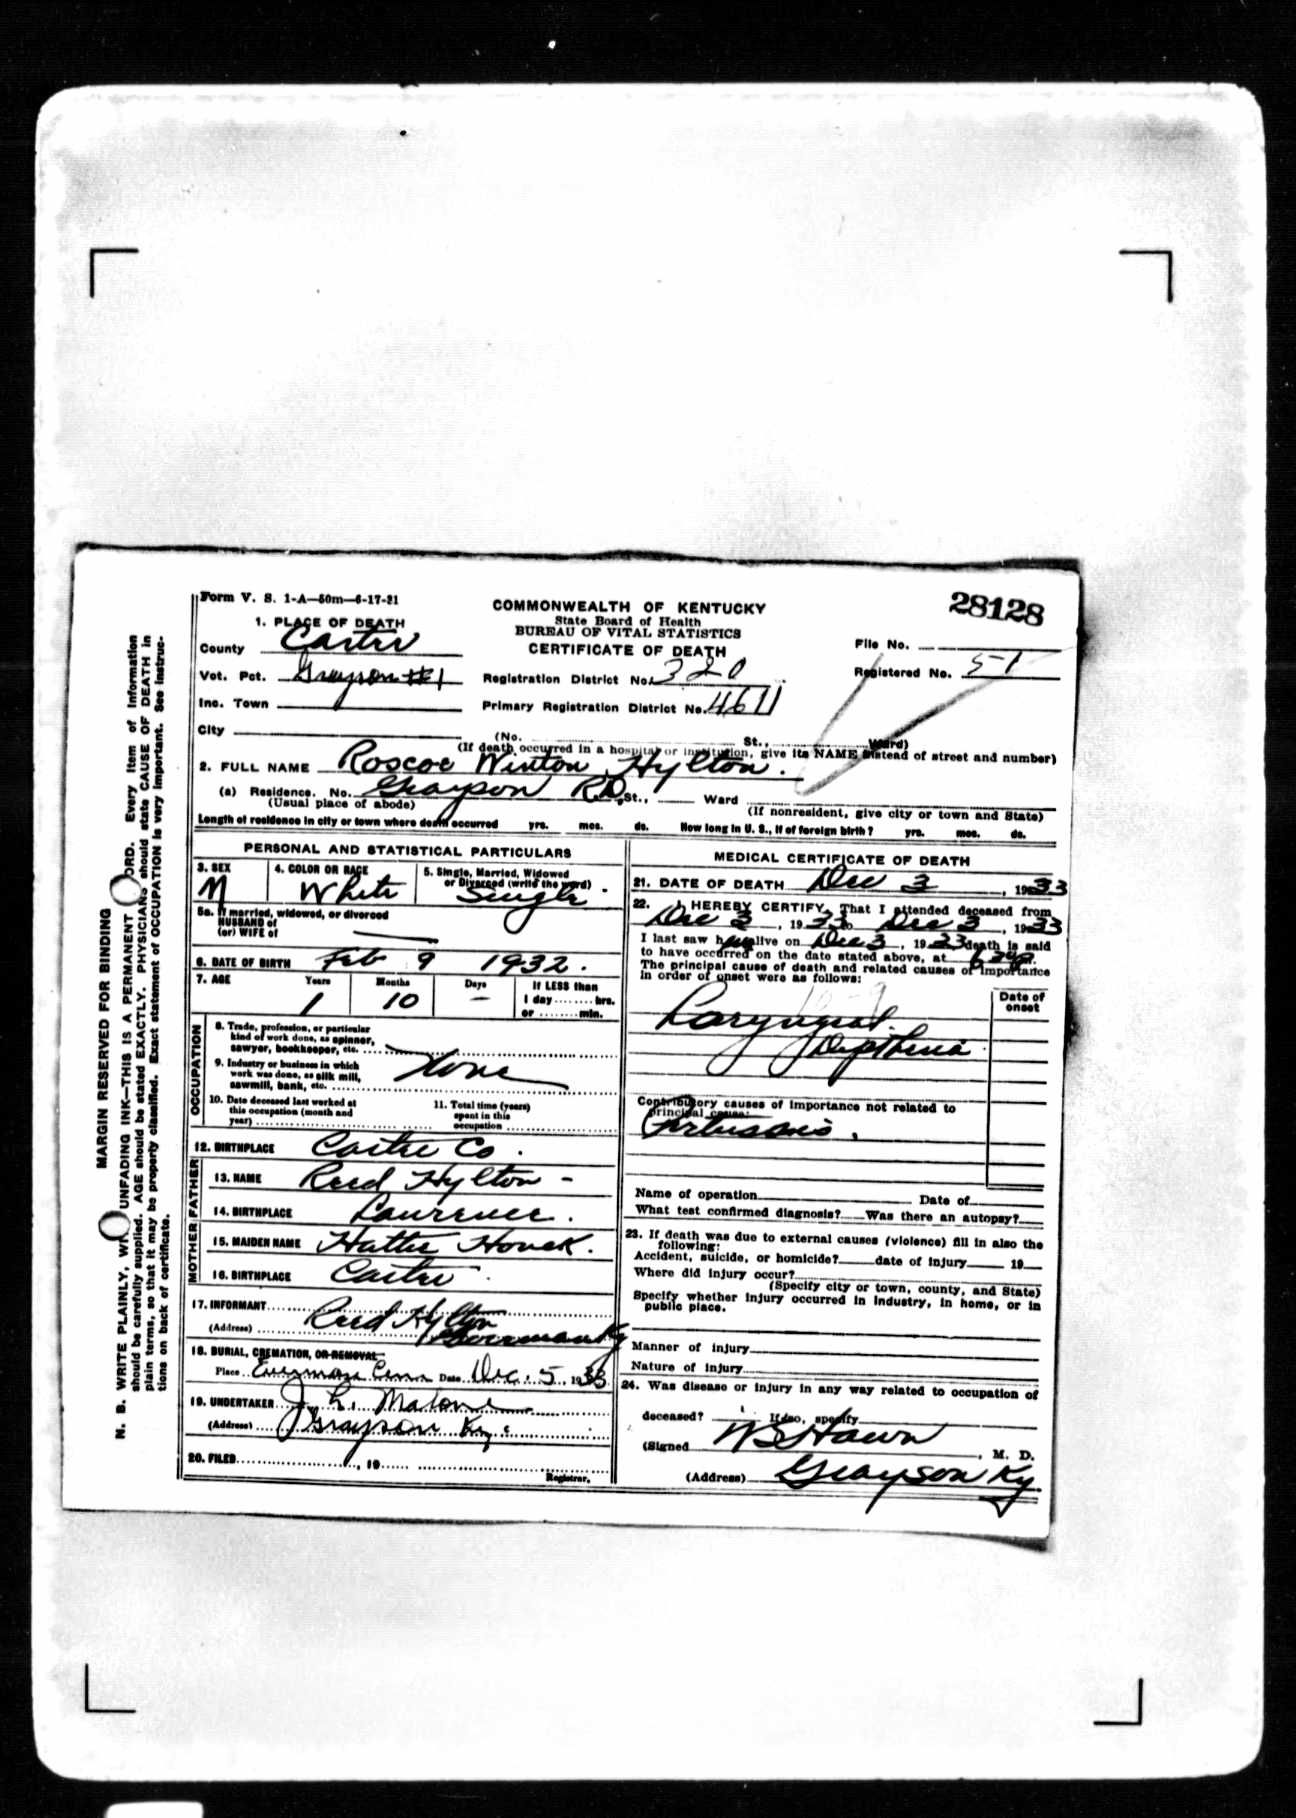 Form V. S. 1-A—50m—6-17-31
28128
COMMONWEALTH OF KENTUCKY
State Board of Health
BUREAU OF VITAL STATISTICS
CERTIFICATE OF DEATH
1. PLACE OF DEATH
County Carter
Vot. Pct. Grayson #1
Inc. Town
City
File No.
Registered No. 51
Registration District No. 320
Primary Registration District No. 4611
(No. St., Ward)
(If death occurred in a hospital or institution, give its NAME instead of street and number)
2. FULL NAME Roscoe Winton Hylton.
(a) Residence. No. Grayson RD, St., Ward
(Usual place of abode) (If nonresident, give city or town and State)
Length of residence in city or town where death occurred yrs. mos. ds. How long in U. S., if of foreign birth? yrs. mos. ds.
PERSONAL AND STATISTICAL PARTICULARS
3. SEX M
4. COLOR OR RACE White
5. Single, Married, Widowed
or Divorced (write the word) Single.
5a. If married, widowed, or divorced
HUSBAND of
(or) WIFE of
6. DATE OF BIRTH Feb 9 1932.
7. AGE Years Months Days If LESS than
1 10 - 1 day........hrs.
or ........min.
OCCUPATION
8. Trade, profession, or particular
kind of work done, as spinner,
sawyer, bookkeeper, etc.
None
9. Industry or business in which
work was done, as silk mill,
sawmill, bank, etc.
10. Date deceased last worked at
this occupation (month and
year)
11. Total time (years)
spent in this
occupation
12. BIRTHPLACE Carter Co.
FATHER
13. NAME Reed Hylton -
14. BIRTHPLACE Laurence.
MOTHER
15. MAIDEN NAME Hattie Houck.
16. BIRTHPLACE Carter.
17. INFORMANT Reed Hylton
(Address) Ky
18. BURIAL, CREMATION, OR REMOVAL
Place Date Dec. 5, 1933
19. UNDERTAKER J. L. Malone
(Address) Grayson Ky.
20. FILED, 19
Registrar.
MEDICAL CERTIFICATE OF DEATH
21. DATE OF DEATH Dec 3, 1933
22. I HEREBY CERTIFY, That I attended deceased from
Dec 3, 1933 to Dec 3, 1933
I last saw h alive on Dec 3, 1933 death is said
to have occurred on the date stated above, at 6 m.
The principal cause of death and related causes of importance
in order of onset were as follows:
Date of
onset
Laryngeal
Diptheria
Contributory causes of importance not related to
principal cause:
Pertussis.
Name of operation Date of
What test confirmed diagnosis? Was there an autopsy?
23. If death was due to external causes (violence) fill in also the
following:
Accident, suicide, or homicide? date of injury 19
Where did injury occur?
(Specify city or town, county, and State)
Specify whether injury occurred in industry, in home, or in
public place.
Manner of injury
Nature of injury
24. Was disease or injury in any way related to occupation of
deceased? If so, specify
(Signed M. D.
(Address) Grayson Ky.
MARGIN RESERVED FOR BINDING
N. B. WRITE PLAINLY, UNFADING INK—THIS IS A PERMANENT ORD. Every item of information
should be carefully supplied. AGE should be stated EXACTLY. PHYSICIANS should state CAUSE OF DEATH in
plain terms, so that it may be properly classified. Exact statement of OCCUPATION is very important. See instruc-
tions on back of certificate.